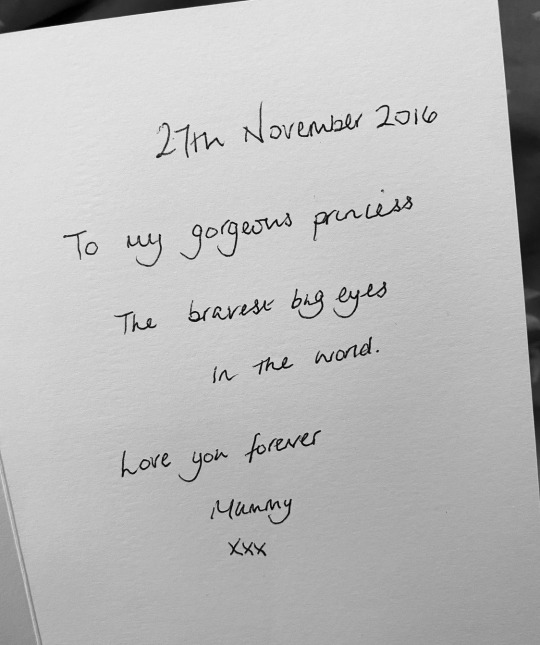 27th November 2016
To my gorgeous princess
The bravest big eyes
in the world.
Love you forever
Mummy
xxx